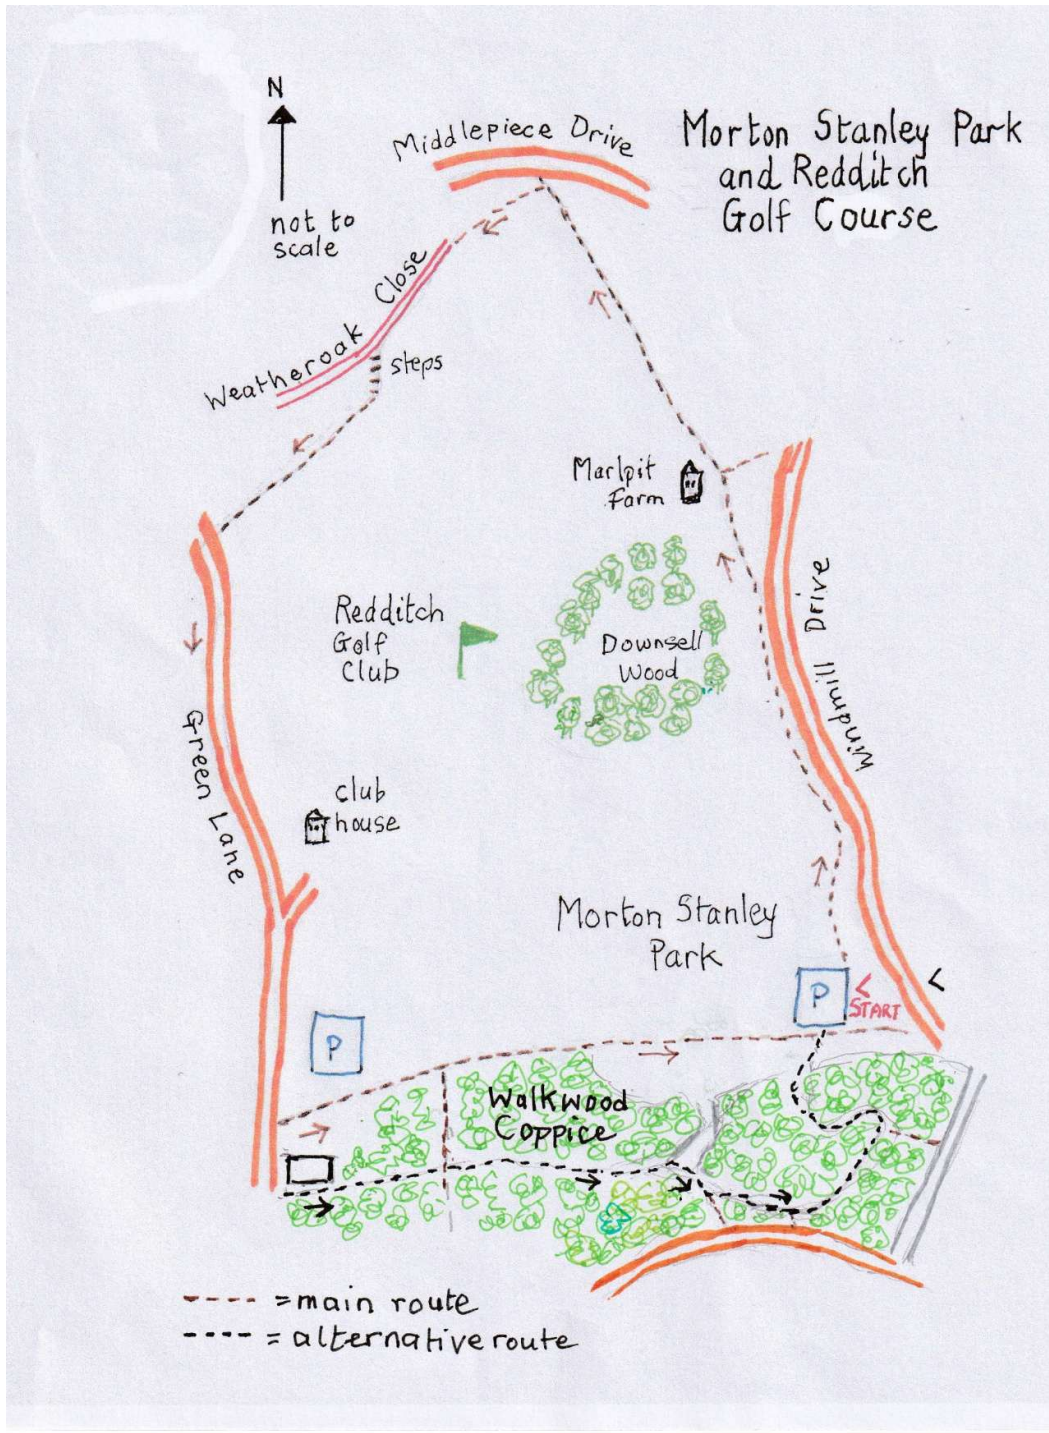 N
not to
scale
Middlepiece Drive
Morton Stanley Park
and Redditch
Golf Course
Weatheroak Close
steps
Marlpit
Farm
Redditch
Golf
Club
Downsell
Wood
Windmill Drive
Green Lane
club
house
Morton Stanley
Park
P
START
P
Walkwood
Coppice
= main route
= alternative route